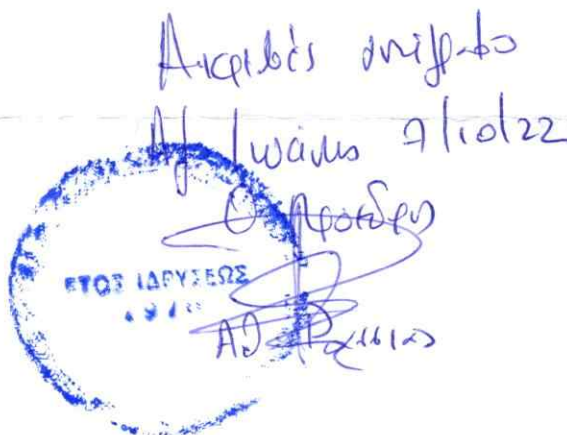 Ακριβές αντίγραφο
Αγ Ιωάννης 7/10/22
Ο Προεδρος
ΕΤΟΣ ΙΔΡΥΣΕΩΣ
ΑΘ